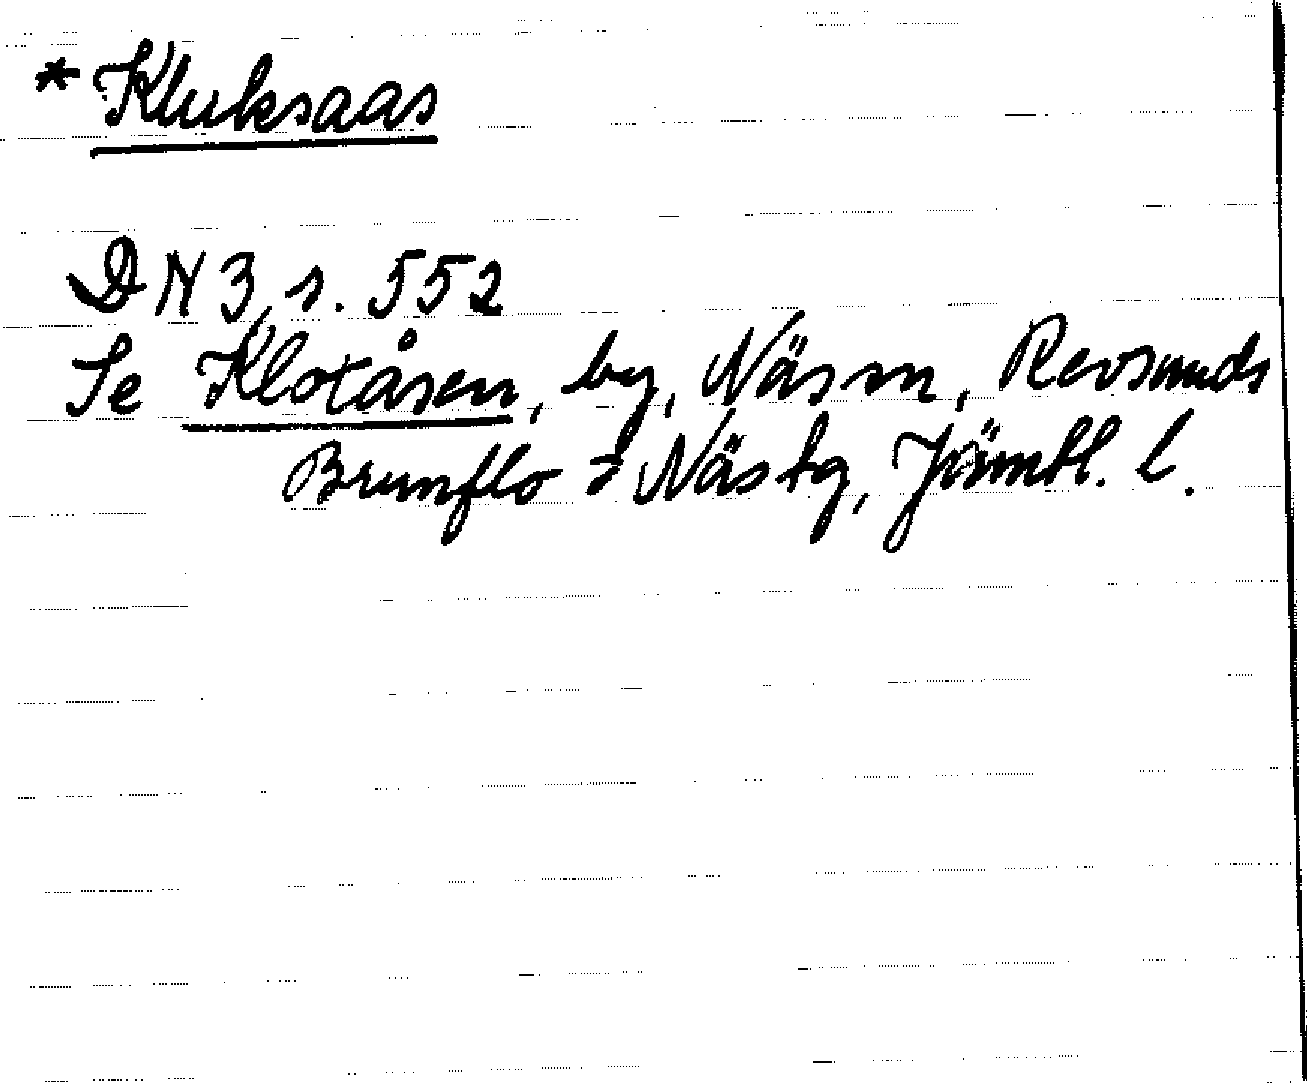 * Kluksaas
DN 3, s. 552
Se Kloxåsen, by, Näs sn, Revsunds
Brunflo o Näs tg, Jämtl. l.